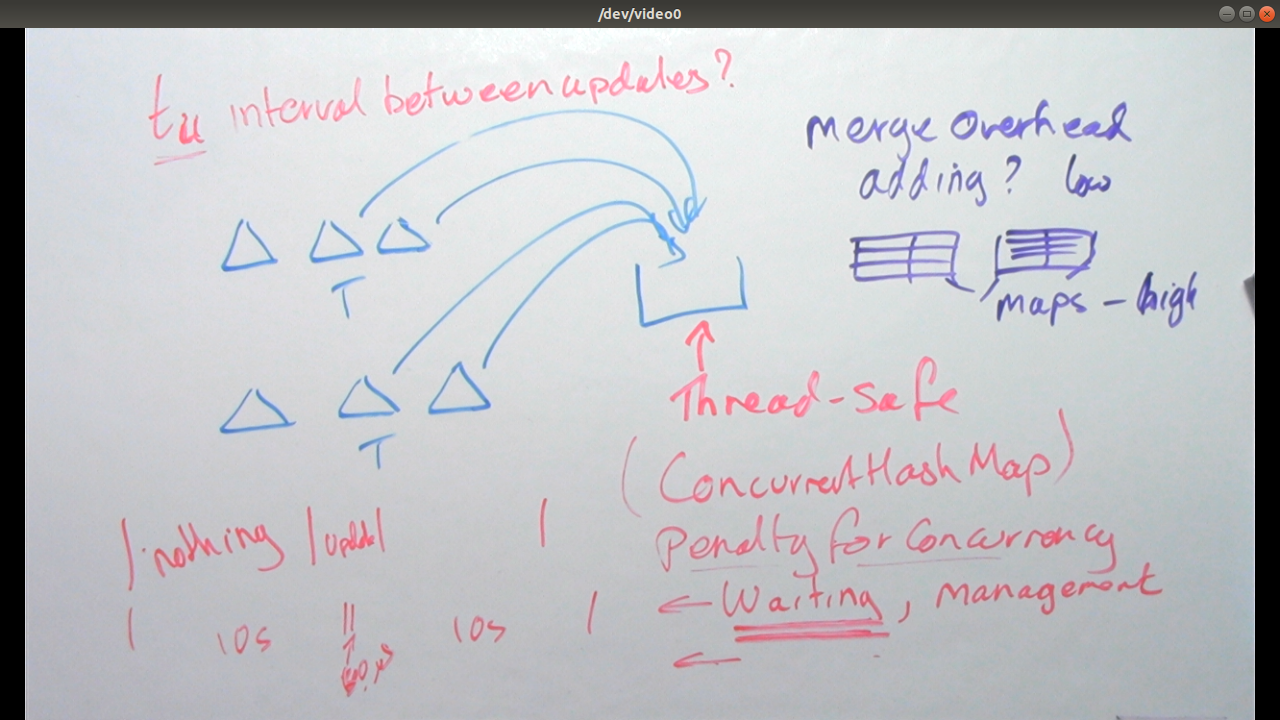 /dev/video0
tu interval between updates?
merge overhead
adding? low
T
maps - high
Thread-safe
T
(ConcurrentHashMap)
| nothing | update |
Penalty for Concurrency
← Waiting, management
10s
10s